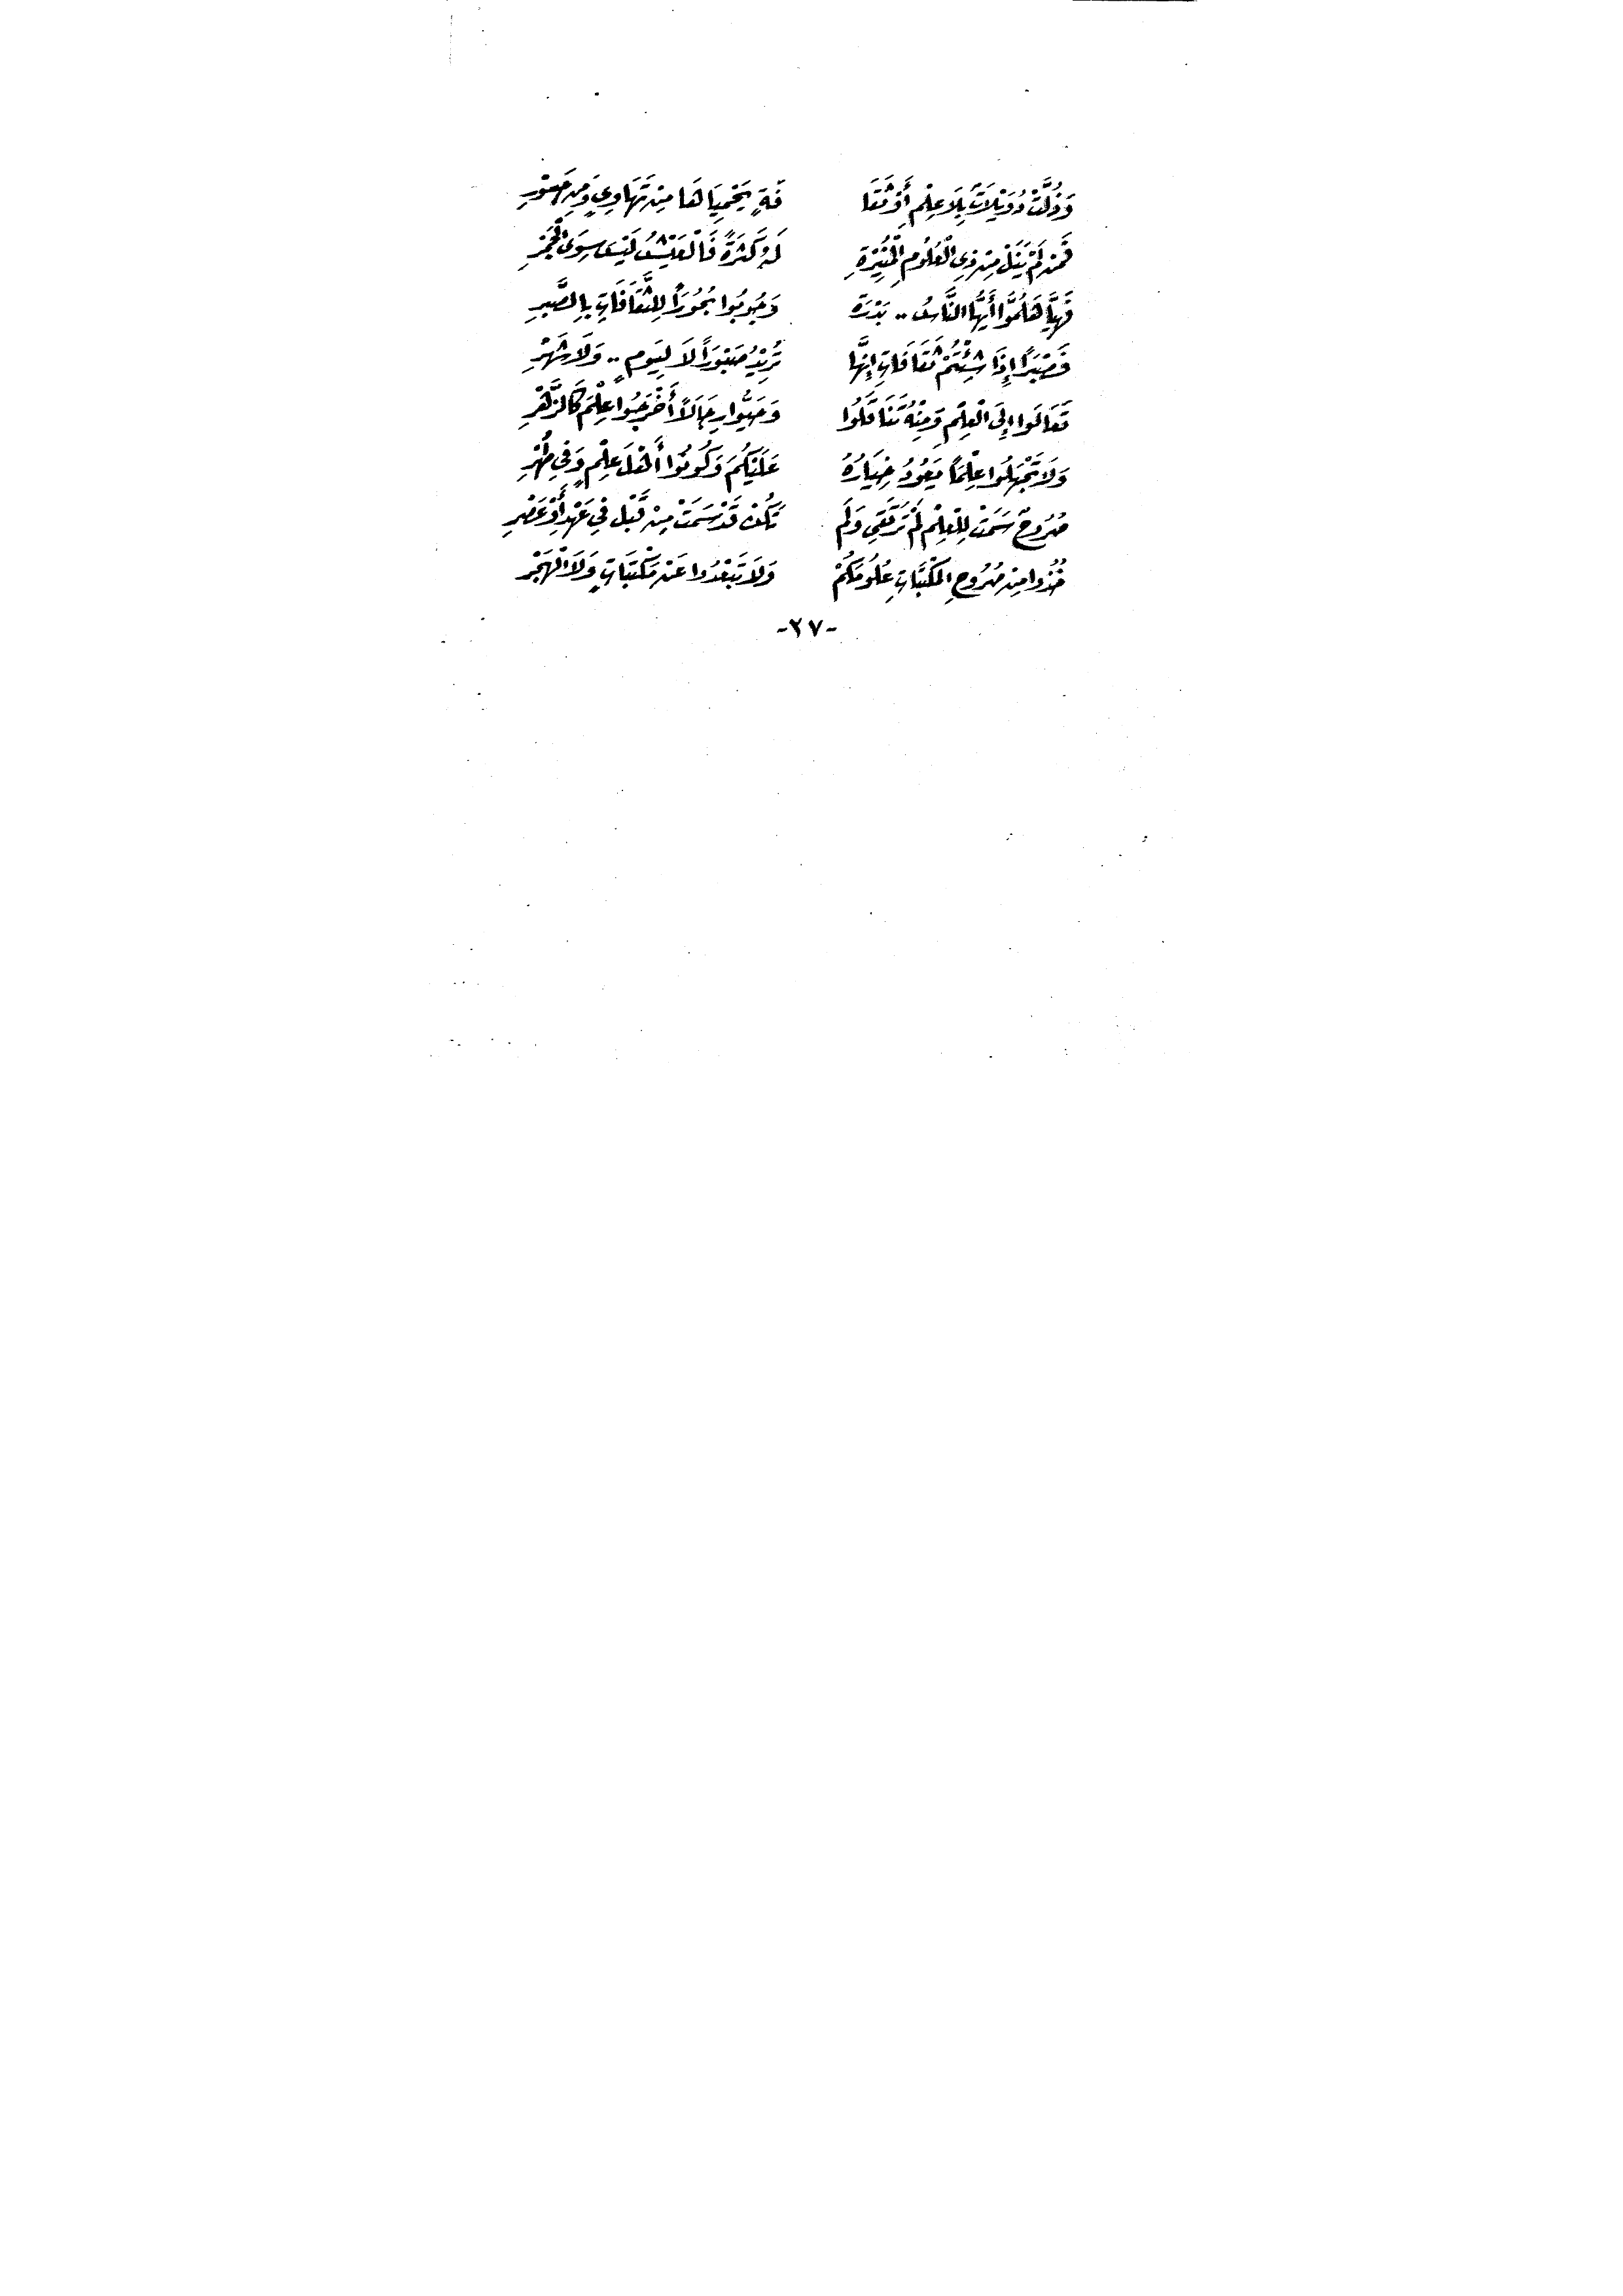 وَذُلَّتْ دُوَيْلَاتٌ بِلَا عِلْمٍ أَوْ ثَقَا فَةٍ يَحْمِيَاهَا مِنْ تَهَاوِيَ وَمِنْ
فَمَنْ لَمْ يَنَلْ مِنْ ذِي الْعُلُومِ الْمُنِيرَةِ كَثْرَةً فَالْعَيْشُ لَيْسَ سِوَى
فَهَيَّا هَلُمُّوا أَيُّهَا النَّاسُ .. وَجُوبُوا بُحُورَاً لِلثَّقَافَاتِ بِالصَّبْرِ
فَصَبْرًا إِذَا شِئْتُمْ ثَقَافَاتِ إِنَّهَا تُرِيْدُ صَبُورَاً لَا لِيَومٍ .. وَلَا شَهْرِ
تَعَالَوا إِلَى الْعِلْمِ وَمِنْهُ تَنَاقَلُوا وَحَيُّوا رِجَالَاً أَخْرَجُوا عِلْمَ كَالزَّهْرِ
وَلَا تَجْهَلُوا عِلْمَاً يَعُودُ خِيَارُهُ عَلَيْكُمْ وَكُونُوا أَهْلَ عِلْمٍ وَفِي طُهْرِ
صُرُوحٌ سَمَتْ لِلْعِلْمِ لَمْ تَرْتَقِي وَلَمْ تَكُنْ قَدْ سَمَتْ مِنْ قَبْلُ فِي عَهْدٍ أَوْ عَصْرِ
خُذُوا مِنْ صُرُوحِ الْمَكْتَبَاتِ عُلُومَكُمْ وَلَا تَبْعُدُوا عَنْ مَكْتَبَاتٍ وَلَا الْهَجْرِ
-٢٧-